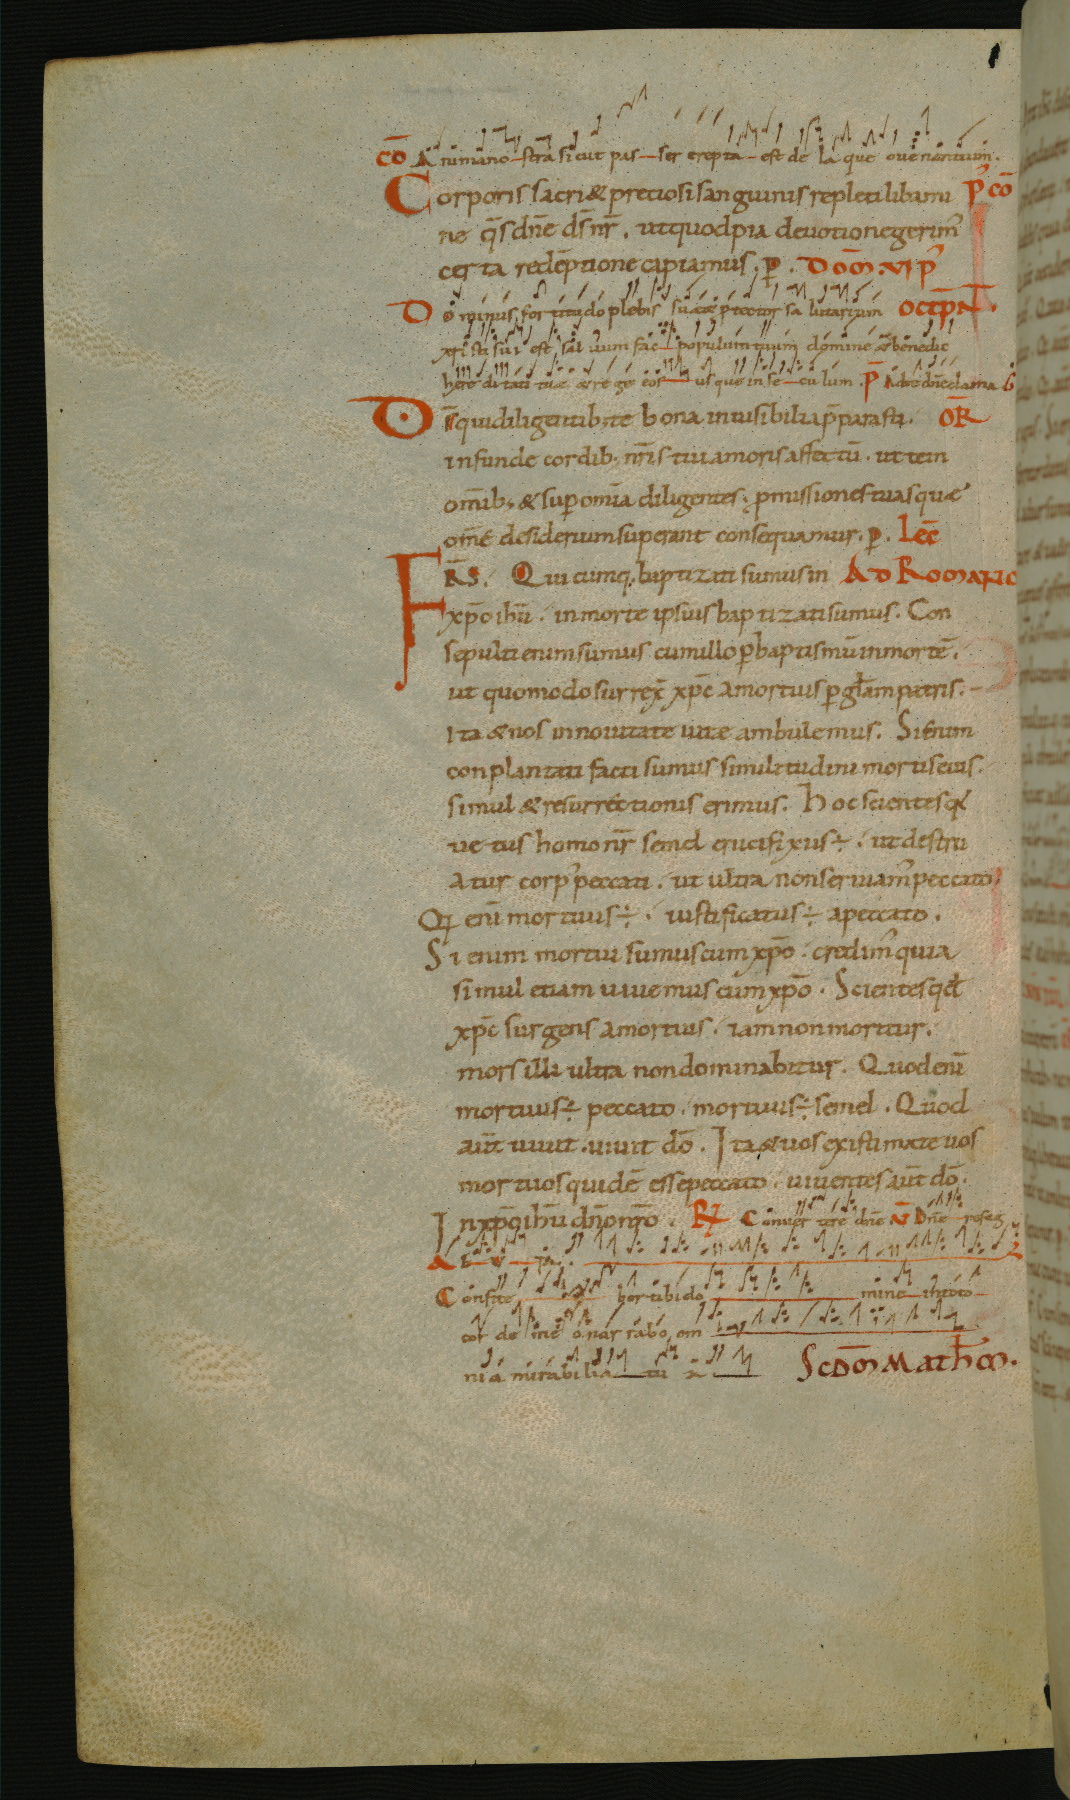 CŌ Animano stra sicut pas ser erepta est de la que ouenantium.
Corporis sacri & pretiosi sanguinis repleti libami P̄ CŌ
ne q̄s dn̄e ds̄ nr̄. ut quod pia devotione gerim᾽
certa redēptione capiamus. p̱. DOM̄. VI P᾽
Dominus fortitudo plebis suæ & p̄tector salutarium OCT P̄N̄.
xp̄isti sui est sal uum fac populum tuum domine & benedic
heredi tati tuæ & rege eos usque in se culum. P̄ Ad te dn̄e clama b
Ds̄ qui diligentib; te bona inuisibilia p̄parasti. OR̄
infunde cordib; nr̄is tui amoris affectū. ut te in
om̄ib; & sup om̄ia diligentes. p̄missiones tuas quæ
om̄e desiderium superant consequamur. p̱. LEC̄
FR̄S. Quicumq; baptizati sumus in AD ROMANO
xp̄o ihū. in morte ipsius baptizati sumus. Con
sepulti enim sumus cum illo p baptismū in mortē.
ut quomodo surrex̄ xp̄c a mortuis p gl̄am patris.
Ita & nos in nouitate uitæ ambulemus. Si enim
conplantati facti sumus similitudini mortis eius.
simul & resurrectionis erimus. Hoc scientes q᷎
uetus homo nr̄ semel crucifixus ÷. ut destru
atur corp᾽ peccati. ut ultra non seruiam᾽ peccato.
Q᷎ enī mortuus ÷. iustificatus ÷ a peccato.
Si enim mortui sumus cum xp̄o. credim᾽ quia
simul etiam uiuemus cum xp̄o. Scientes qd̄
xp̄c surgens a mortuis. iam non moritur.
mors illi ultra non dominabitur. Quod enī
mortuus ÷ peccato. mortuus ÷ semel. Quod
aut̄ uiuit. uiuit dō. Ita & uos existimate uos
mortuos quidē esse peccato. uiuentes aut̄ dō.
In xp̄o ihū dn̄o nr̄o. R̷ Conuer tere dn̄e V̄ Dn̄e refug
A E V IA.
Confite bor tibi do mine in toto
cor de me o nar rabo om
ni a mirabilia tu a SCDM̄ MATH̄M.